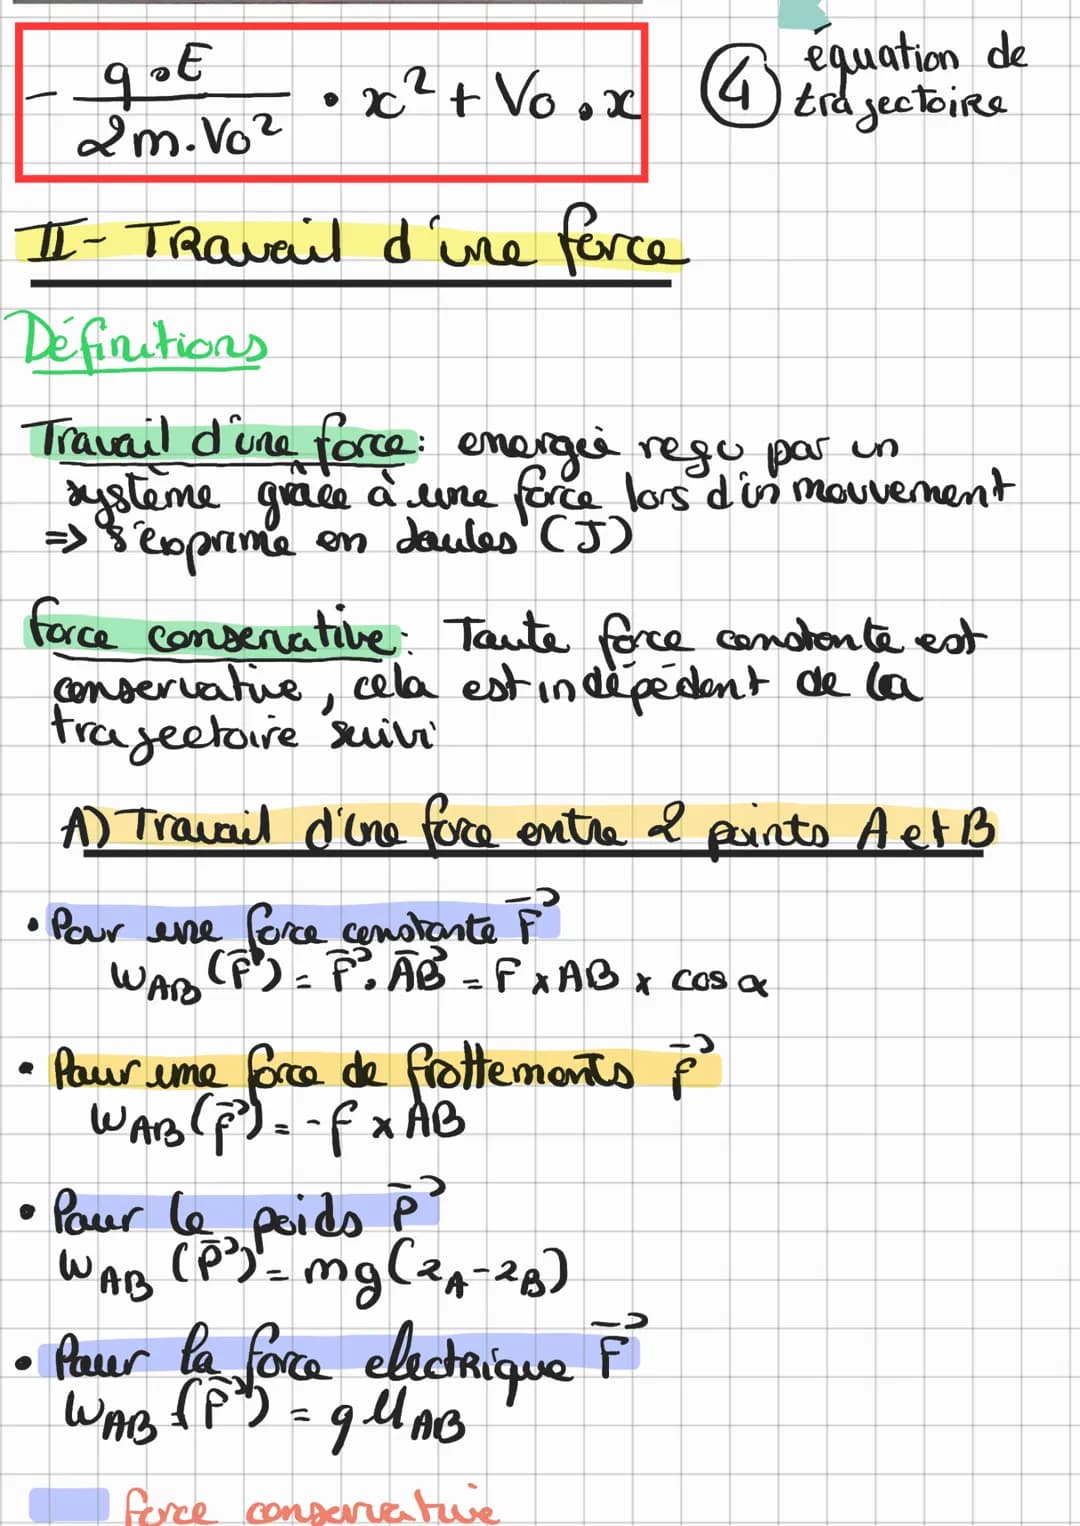 - q.E / 2m.V0² • x² + V0.x
④ équation de
trajectoire
II- Travail d'une force
Définitions
Travail d'une force: energie reçu par un
système grâce à une force lors d'un mouvement
=> s'exprime en Joules (J)
force conservative: Toute force constante est
conservative, cela est indépédent de la
trajectoire suivi
A) Travail d'une force entre 2 points A et B
• Pour une force constante F⃗
W_AB (F⃗) = F⃗. AB⃗ = F x AB x cos α
• Pour une force de frottements f⃗
W_AB (f⃗) = - f x AB
• Pour le poids P⃗
W_AB (P⃗) = mg(zA-zB)
• Pour la force electrique F⃗
W_AB (F⃗) = q U_AB
force conservative